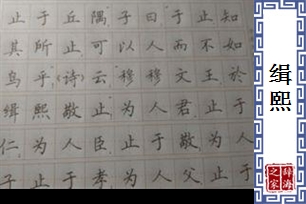 止于丘隅,子曰于止知
其所止可以人而不如
鸟乎《诗》云穆穆文王於
缉熙敬止为人君止于
仁为人臣止于敬为人
子止于孝为人父止于
缉熙
辞海
之家